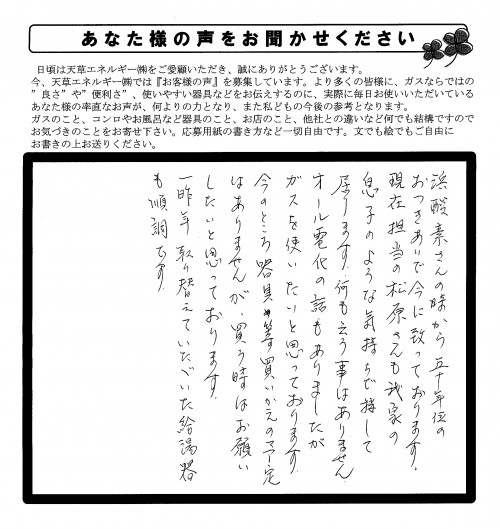 あなた様の声をお聞かせください
日頃は天草エネルギー㈱をご愛顧いただき、誠にありがとうございます。
今、天草エネルギー㈱では『お客様の声』を募集しています。より多くの皆様に、ガスならではの
”良さ”や”便利さ”、使いやすい器具などをお伝えするのに、実際に毎日お使いいただいている
あなた様の率直なお声が、何よりの力となり、また私どもの今後の参考となります。
ガスのこと、コンロやお風呂など器具のこと、お店のこと、他社との違いなど何でも結構ですので
お気づきのことをお寄せ下さい。応募用紙の書き方など一切自由です。文でも絵でもご自由に
お書きの上お送りください。
浜酸素さんの時から五十年位の
おつきあいで今に致っております。
現在担当の松原さんも我家の
息子のような気持ちで接して
居ります。何も云う事はありません。
オール電化の話もありましたが
ガスを使いたいと思っております。
今のところ器具等買いかえの予定
はありませんが、買う時はお願い
したいと思っております。
一昨年取り替えていただいた給湯器
も順調です。